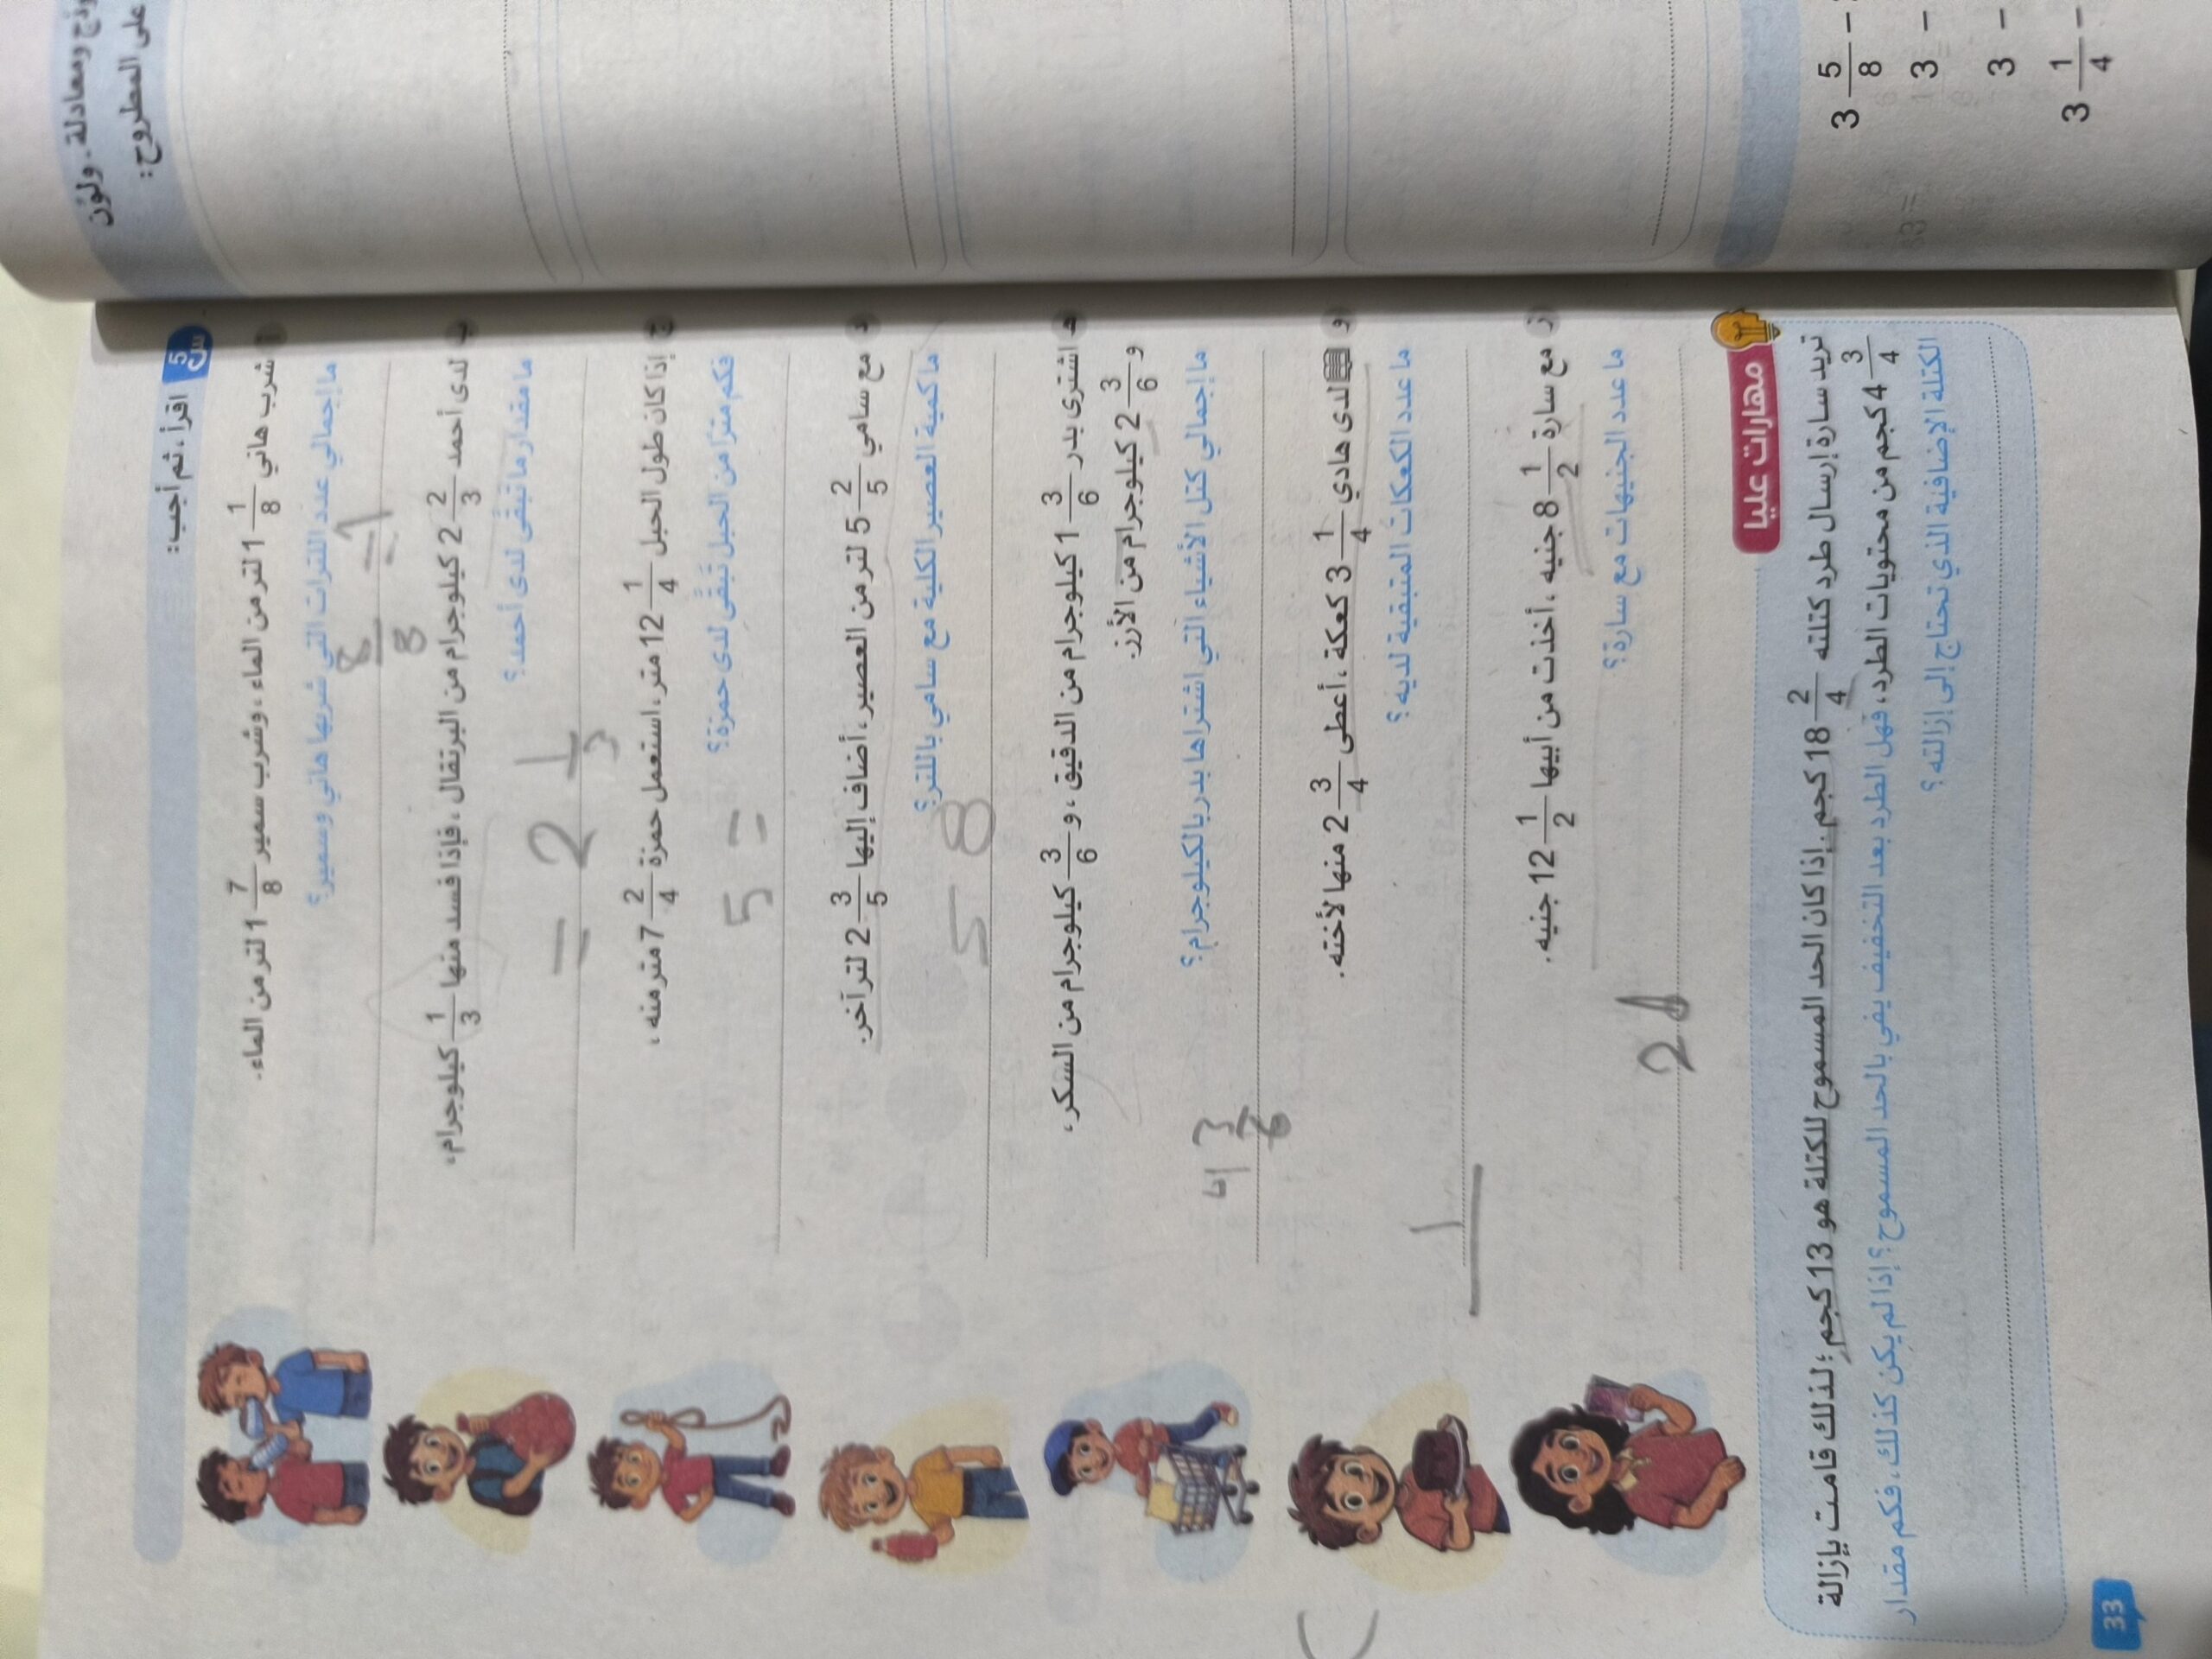 س 5 اقرأ، ثم أجب:
أ شرب هاني 1 1/8 لتر من الماء، وشرب سمير 1 7/8 لتر من الماء.
ما إجمالي عدد اللترات التي شربها هاني وسمير؟
8/8 = 1
ب لدى أحمد 2 2/3 كيلوجرام من البرتقال، فإذا فسد منها 1/3 كيلوجرام،
ما مقدار ما تبقى لدى أحمد؟
= 2 1/3
ج إذا كان طول الحبل 12 1/4 متر، استعمل حمزة 7 2/4 متر منه،
فكم مترًا من الحبل تبقى لدى حمزة؟
5 =
د مع سامي 5 2/5 لتر من العصير، أضاف إليها 2 3/5 لتر آخر.
ما كمية العصير الكلية مع سامي باللتر؟
8
هـ اشترى بدر 1 3/6 كيلوجرام من الدقيق، و 3/6 كيلوجرام من السكر،
و 2 3/6 كيلوجرام من الأرز.
ما إجمالي كتل الأشياء التي اشتراها بدر بالكيلوجرام؟
4 3/6
و لدى هادي 3 1/4 كعكة، أعطى 2 3/4 منها لأخته.
ما عدد الكعكات المتبقية لديه؟
ز مع سارة 8 1/2 جنيه، أخذت من أبيها 12 1/2 جنيه.
ما عدد الجنيهات مع سارة؟
21
مهارات عليا
تريد سارة إرسال طرد كتلته 18 2/4 كجم. إذا كان الحد المسموح للكتلة هو 13 كجم؛ لذلك قامت بإزالة
4 3/4 كجم من محتويات الطرد، فهل الطرد بعد التخفيف يفي بالحد المسموح؟ إذا لم يكن كذلك، فكم مقدار
الكتلة الإضافية الذي تحتاج إلى إزالته؟
33
ومعادلة. ولون
على المطروح:
3 5/8 -
3 -
3 -
3 1/4 -